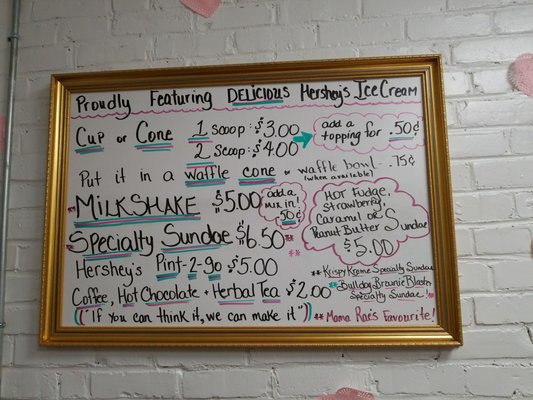 Proudly Featuring DELICIOUS Hershey's Ice Cream
Cup or Cone 1 Scoop: $3.00
2 Scoop: $4.00
add a
topping for .50¢
Put it in a waffle cone or waffle bowl - .75¢
(when available)
*MILKSHAKE $5.00
add a
mix in!
50¢
Hot Fudge,
Strawberry,
Caramel or
Peanut Butter Sundae
$5.00
*Specialty Sundae $6.50 **
Hershey's Pint-2-go $5.00
**Krispy Kreme Specialty Sundae
**Bulldog Brownie Blaster
Specialty Sundae!
Coffee, Hot Chocolate + Herbal Tea $2.00
("If you can think it, we can make it") **Mama Rae's Favourite!